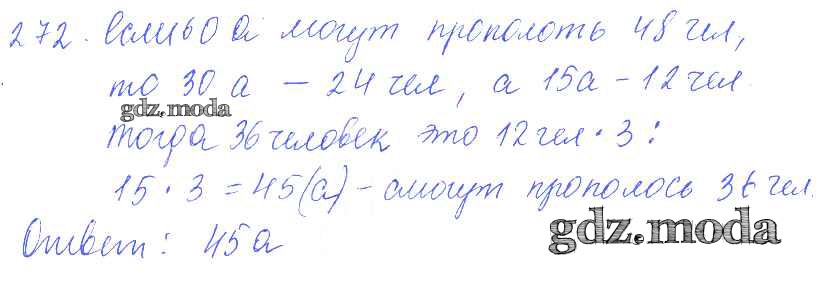 272. Если 60 а могут прополоть 48 чел,
то 30 а – 24 чел, а 15а – 12 чел.
gdz.moda
Тогда 36 человек это 12 чел · 3:
15 · 3 = 45(а) – смогут прополось 36 чел.
Ответ: 45а
gdz.moda